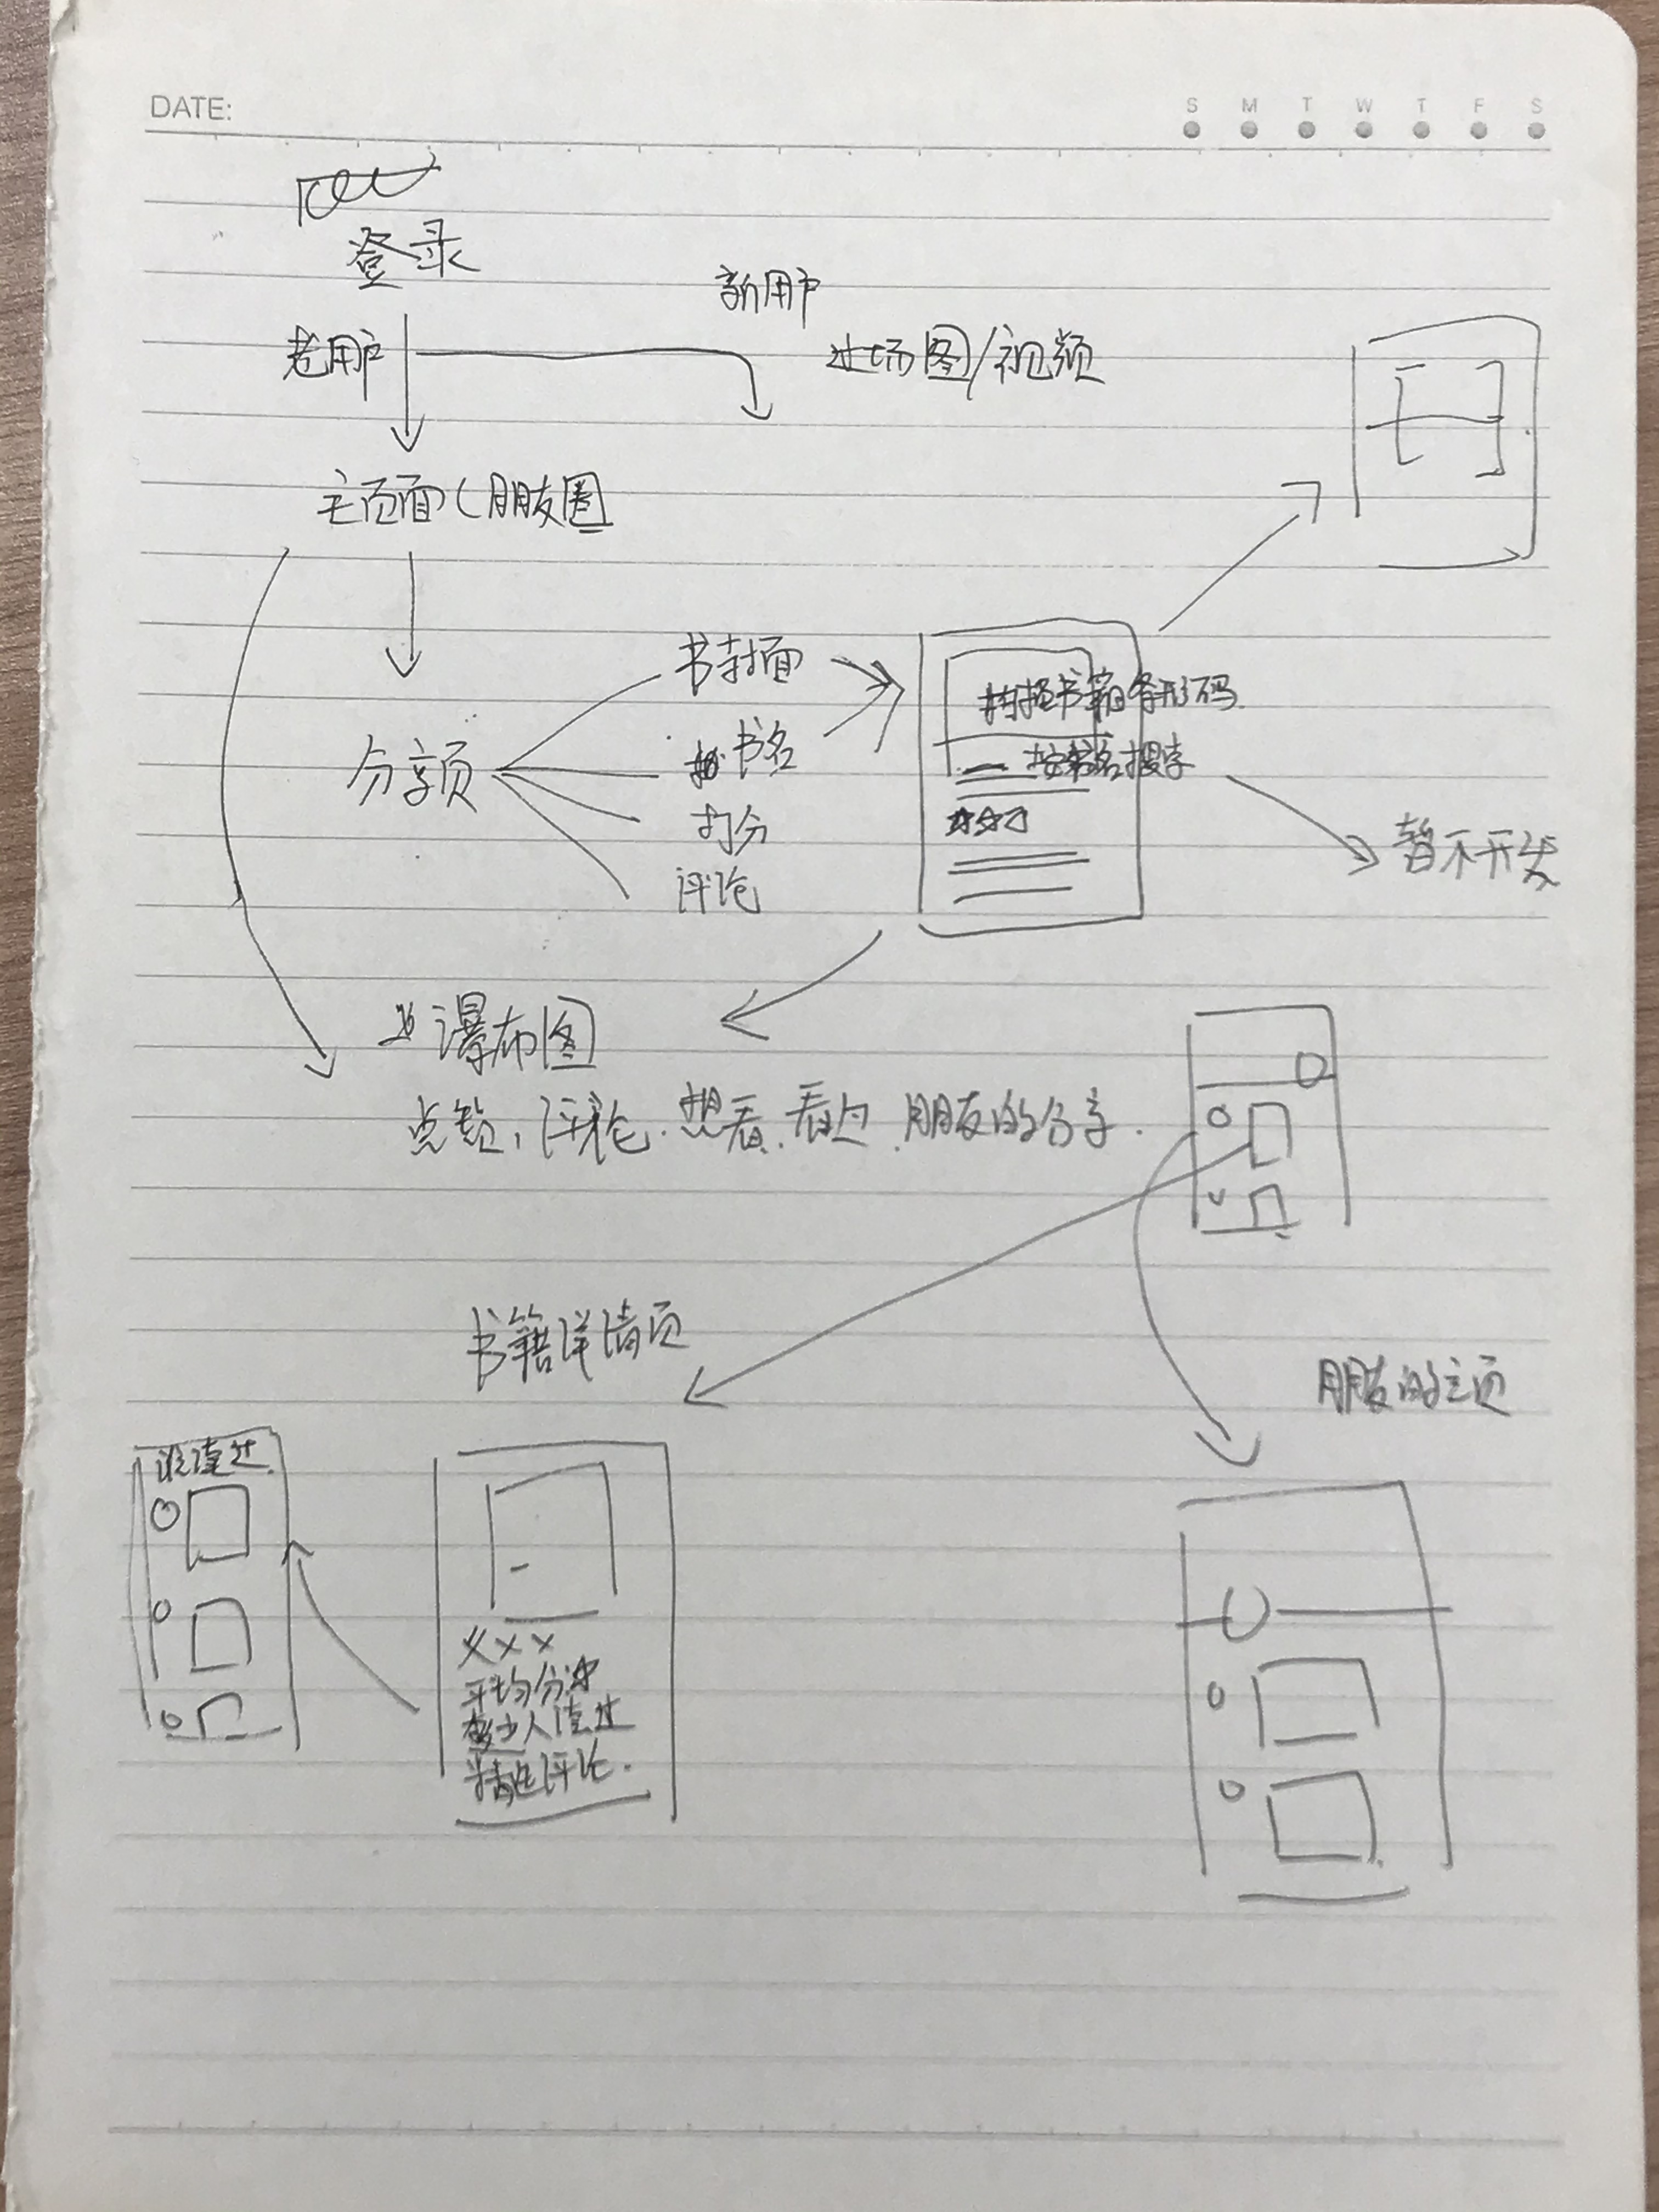 DATE:
S M T W T F S
登录
新用户
老用户
过场图/视频
主页面(朋友圈
书封面
扫描书籍条形码
书名
按书名搜字
分享页
打分
暂不开发
评论
瀑布图
点赞,评论.想看.看过.朋友的分享.
书籍详情页
朋友的主页
谁读过.
XXX
平均分
多少人读过
精选评论.